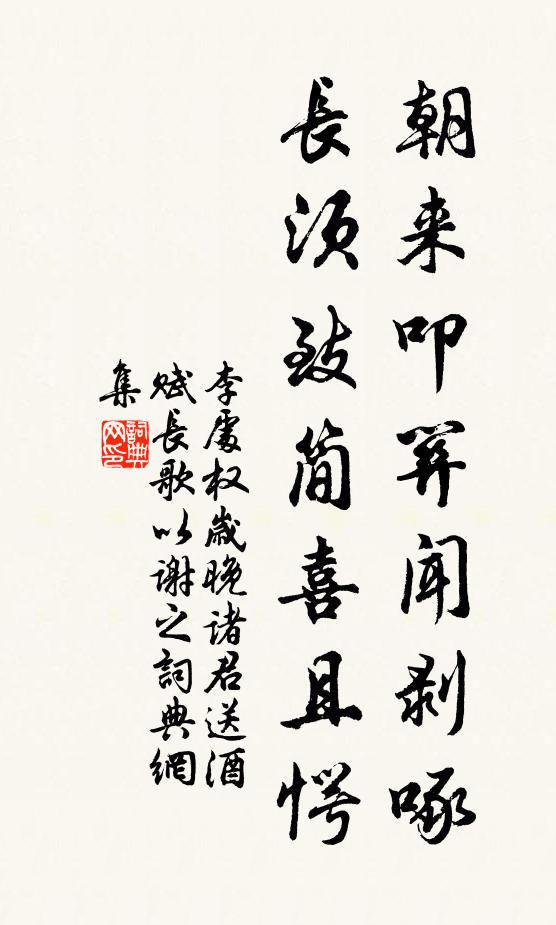 朝来叩関闻剥啄
長须致简喜且愕
李處权歲晚诸君送酒
赋長歌以谢之詞典網
集
詞典网印